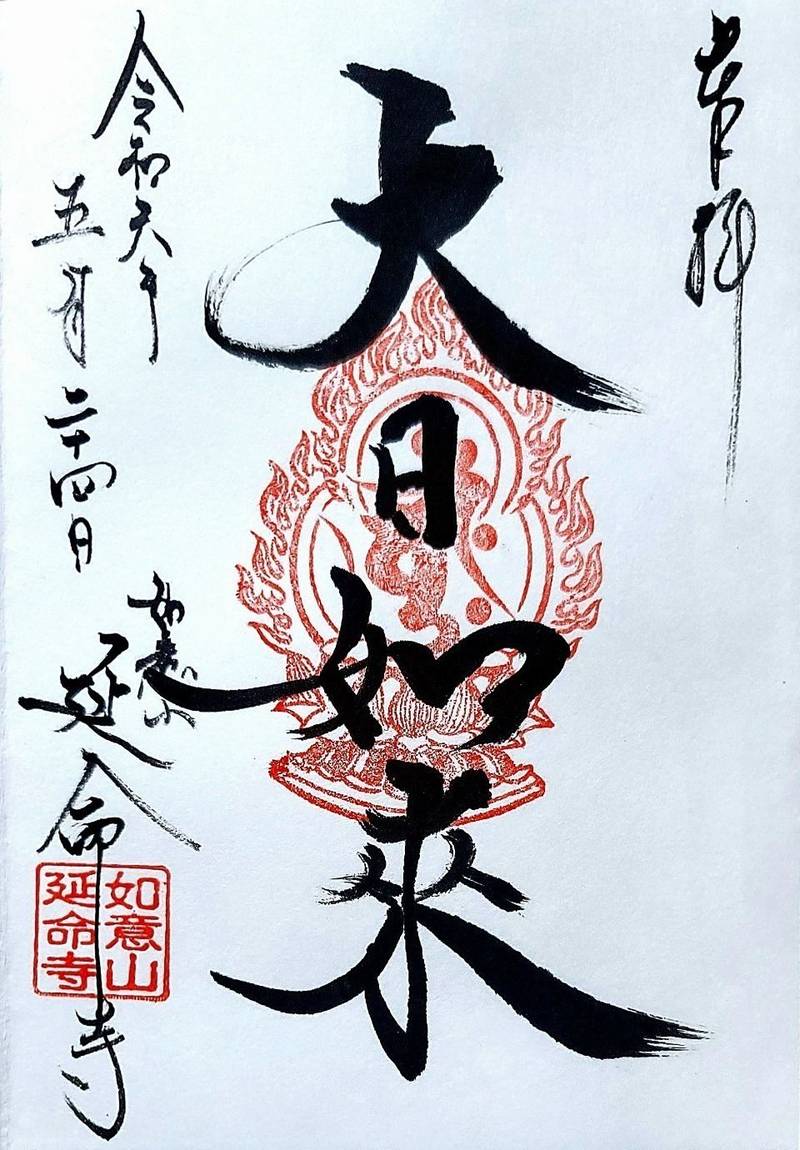 奉拝
大日如来
令和元年
五月二十四日
如意山
延命寺
如意山
延命寺